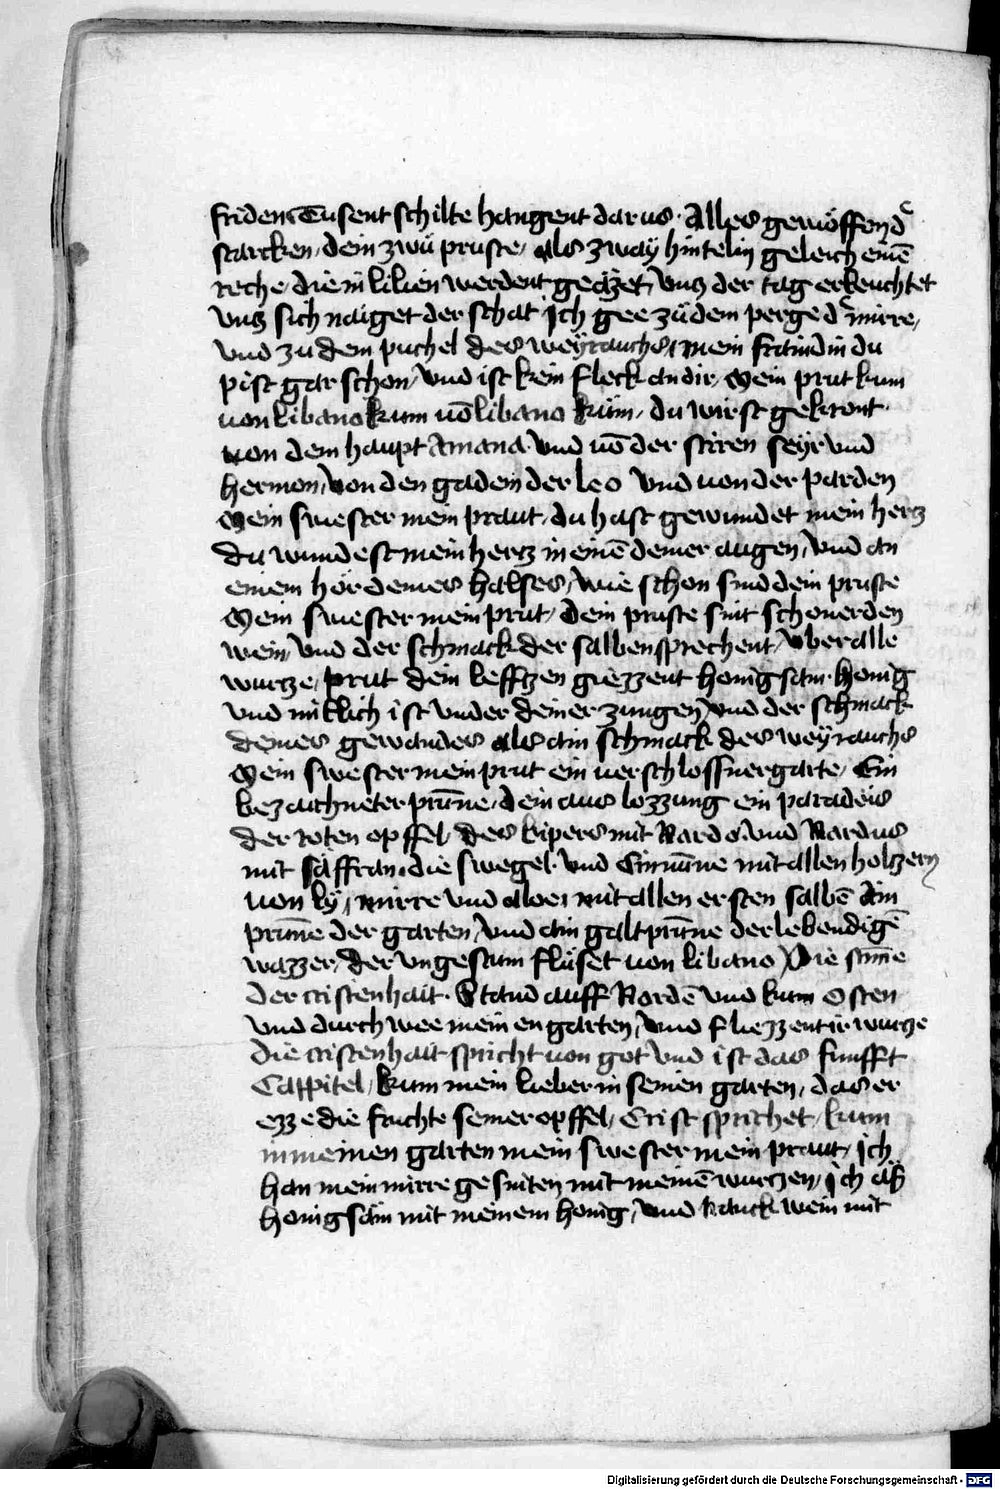 friden Tusent schilte hangent dar us · Alles gewöffen d
starcken / dein zwü pruste / als zway hintelin geleich einē
reche / die in lilien werdent geezet / vnz der tag erleuchtet
vnz sich naiget der schat Ich gee zü dem perge d mirre /
vnd zu dem puchel des weyrauchs / mein fraindin du
pist gar schon / vnd ist kein fleck an dir / Mein prut kum
uon libano kum uō libano küm / du wirst gekront ·
uon dem haupt Amana · vnd uō der stiren seyr vnd
hermon / von den gadem der leo vnd uon der parden
Mein swester mein praut / du hast gewundet mein hertz
du wundest mein hertz in einē deiner augen / vnd an
einem hor deines halses / wie schon sind dein pruste
Mein swester mein prut / dein pruste sint schoner den
wein / vnd der schmack der salben sprechent / vber alle
wurtze / prut dein lefftzen giezzent honigsam · honig
vnd milklich ist vnder deiner zungen / vnd der schmack
deines gewandes als ain schmack des weyrauchs
Mein swester mein prut ein uerschlossner garte / Ein
bezaichneter prūne / dein aus lozzung ein paradeis
der roten opffel / des kipers mit Nardo vnd Nardus
mit saffran · die swegel · vnd Cinnāme mit allen holtzern
uon ly / mirre vnd aloe / mit allen ersten salbē Ain
prūne der garten / vnd ain galtprūne der lebendigē
wazzer / der vngestum flüset uon libano Die stīme
der cristenhait · Stand auff Nordē vnd kum Osten
vnd durch wee meinen garten / vnd fliezzent ir wurtze
Die cristenhait spricht uon got vnd ist das funfft
Cappitel / kum mein lieber in seinen garten / das er
ezze die fruchte seiner opffel / Crist sprichet / kum
in meinen garten mein swester mein praut / ich
han mein mirre gesniten mit meinē wurtzen / ich as
honigsam mit meinem honig / vnd tranck wein mit
Digitalisierung gefördert durch die Deutsche Forschungsgemeinschaft - DFG